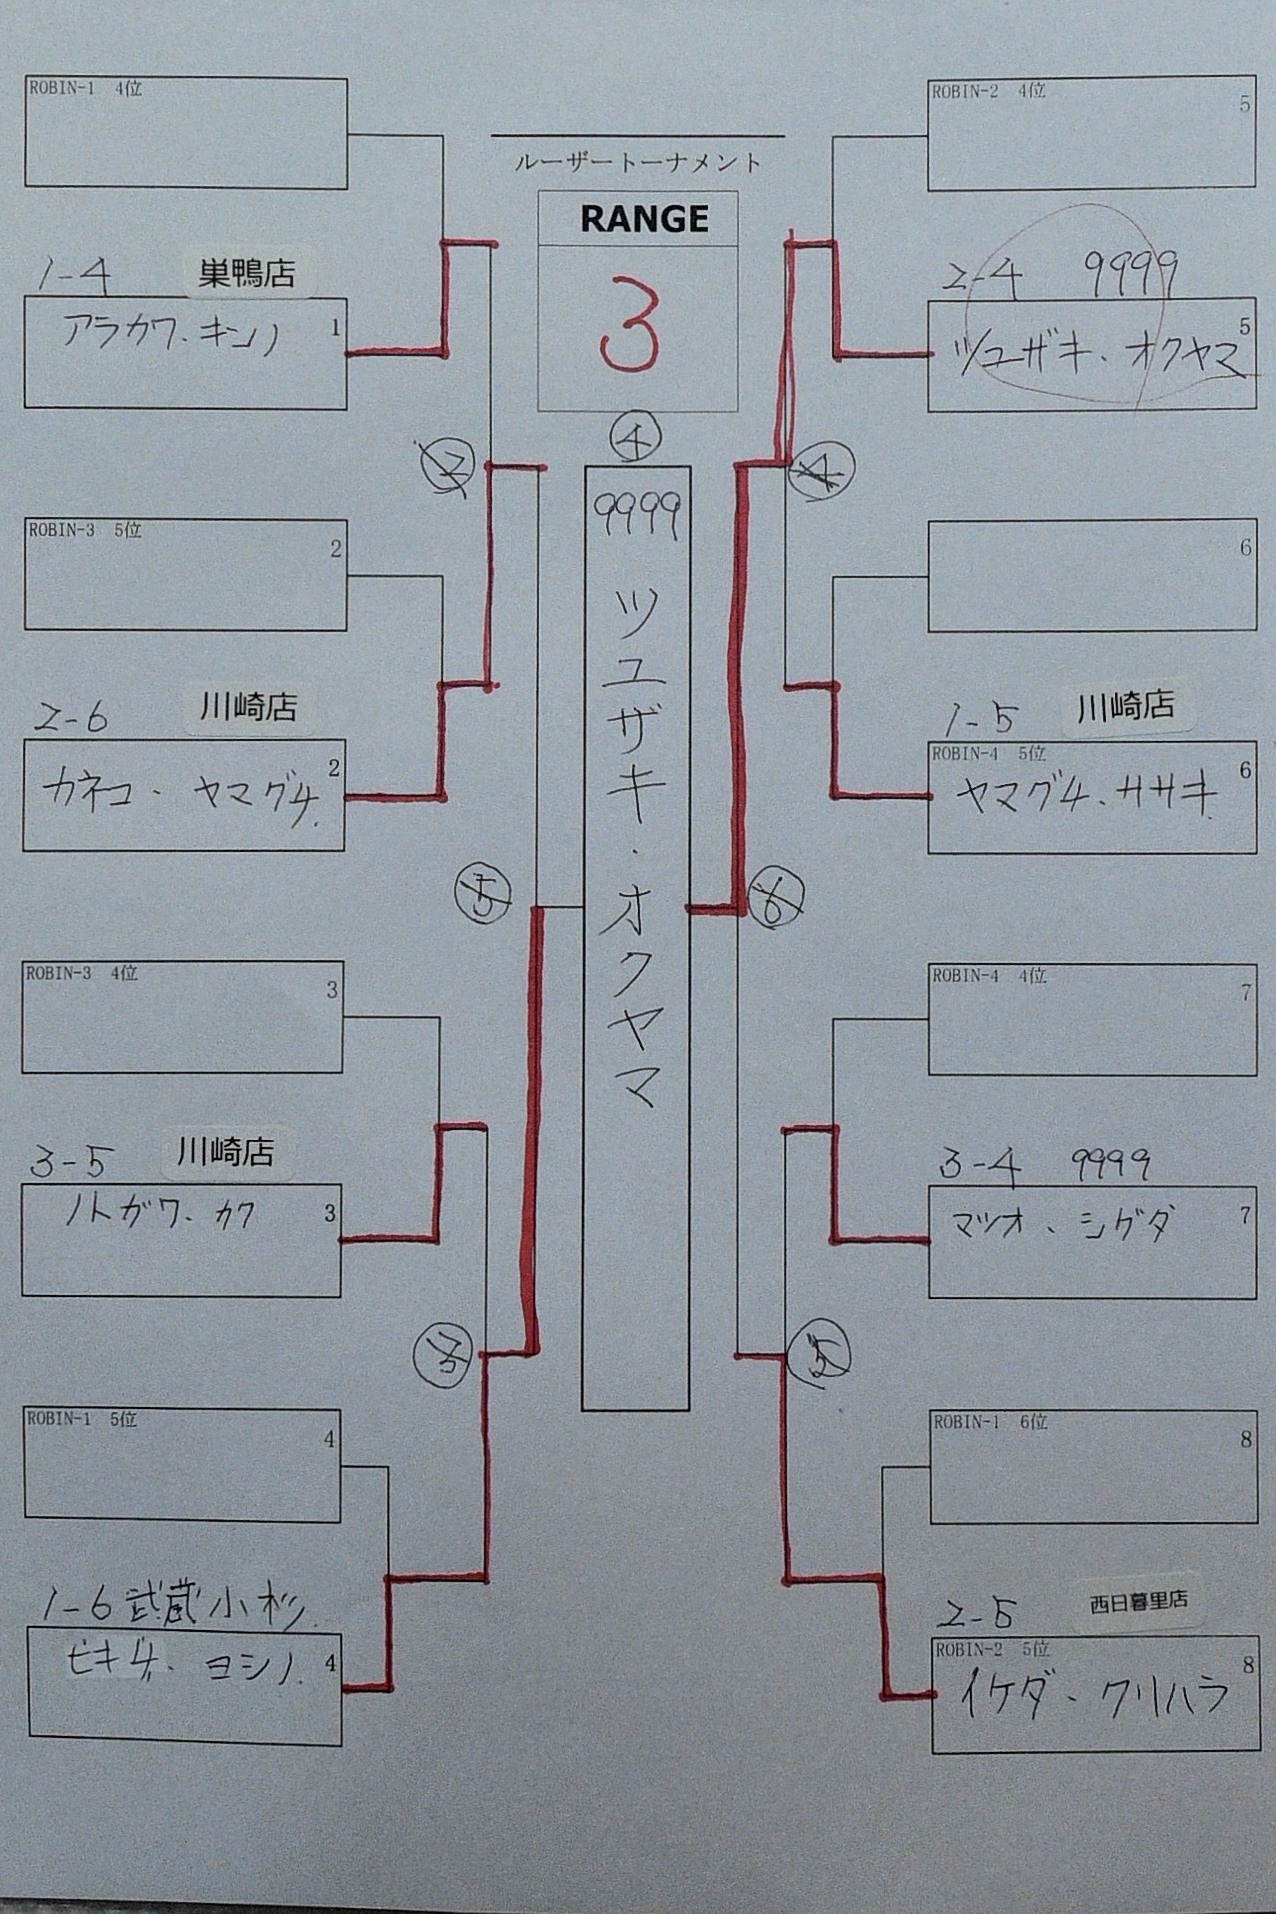 ルーザートーナメント
RANGE
3
④
9999 ツユザキ・オクヤマ
ROBIN-1 4位
1-4 巣鴨店
アラカワ・キンノ 1
ROBIN-3 5位 2
2-6 川崎店
カネコ・ヤマグチ 2
ROBIN-3 4位 3
3-5 川崎店
ノトガワ・カワ 3
ROBIN-1 5位 4
1-6 武蔵小杉
ビキチ・ヨシノ 4
⑤
ROBIN-2 4位 5
2-4 9999
ツユザキ・オクヤマ 5
④
6
1-5 川崎店
ROBIN-4 5位
ヤマグチ・ササキ 6
⑥
ROBIN-4 4位 7
3-4 9999
マツオ・シゲタ 7
ROBIN-1 6位 8
2-5 西日暮里店
ROBIN-2 5位
イケダ・クリハラ 8